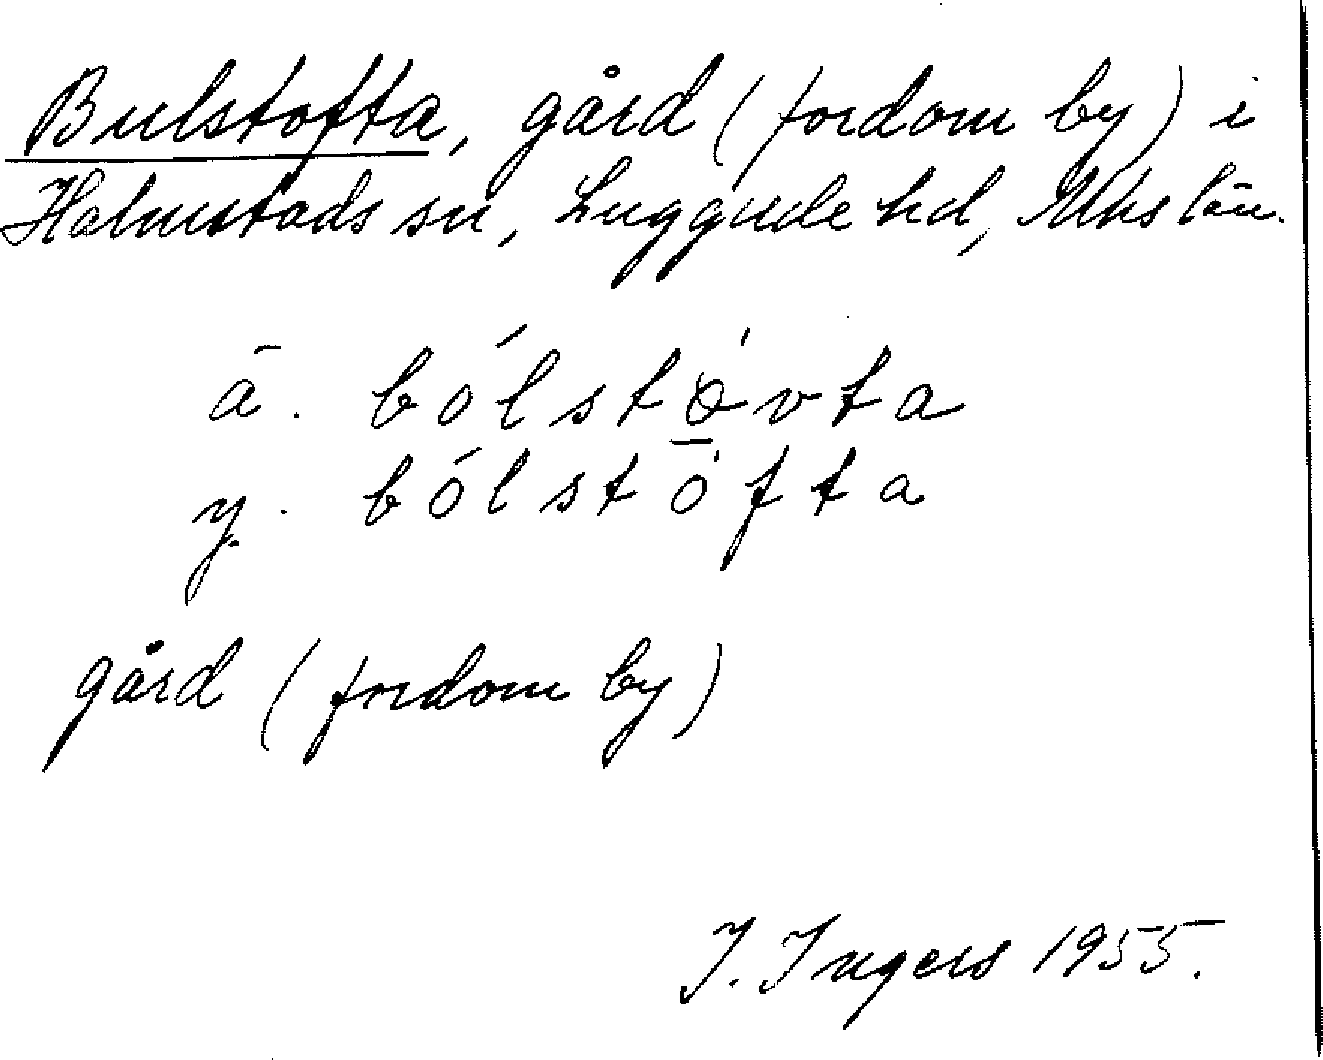 Bulstofta, gård (fordom by) i
Halmstads sn, Luggude hd, Mhs län.
ä. bólstò̲vta
y. bólstòfta
gård (fordom by)
I. Ingers 1955.